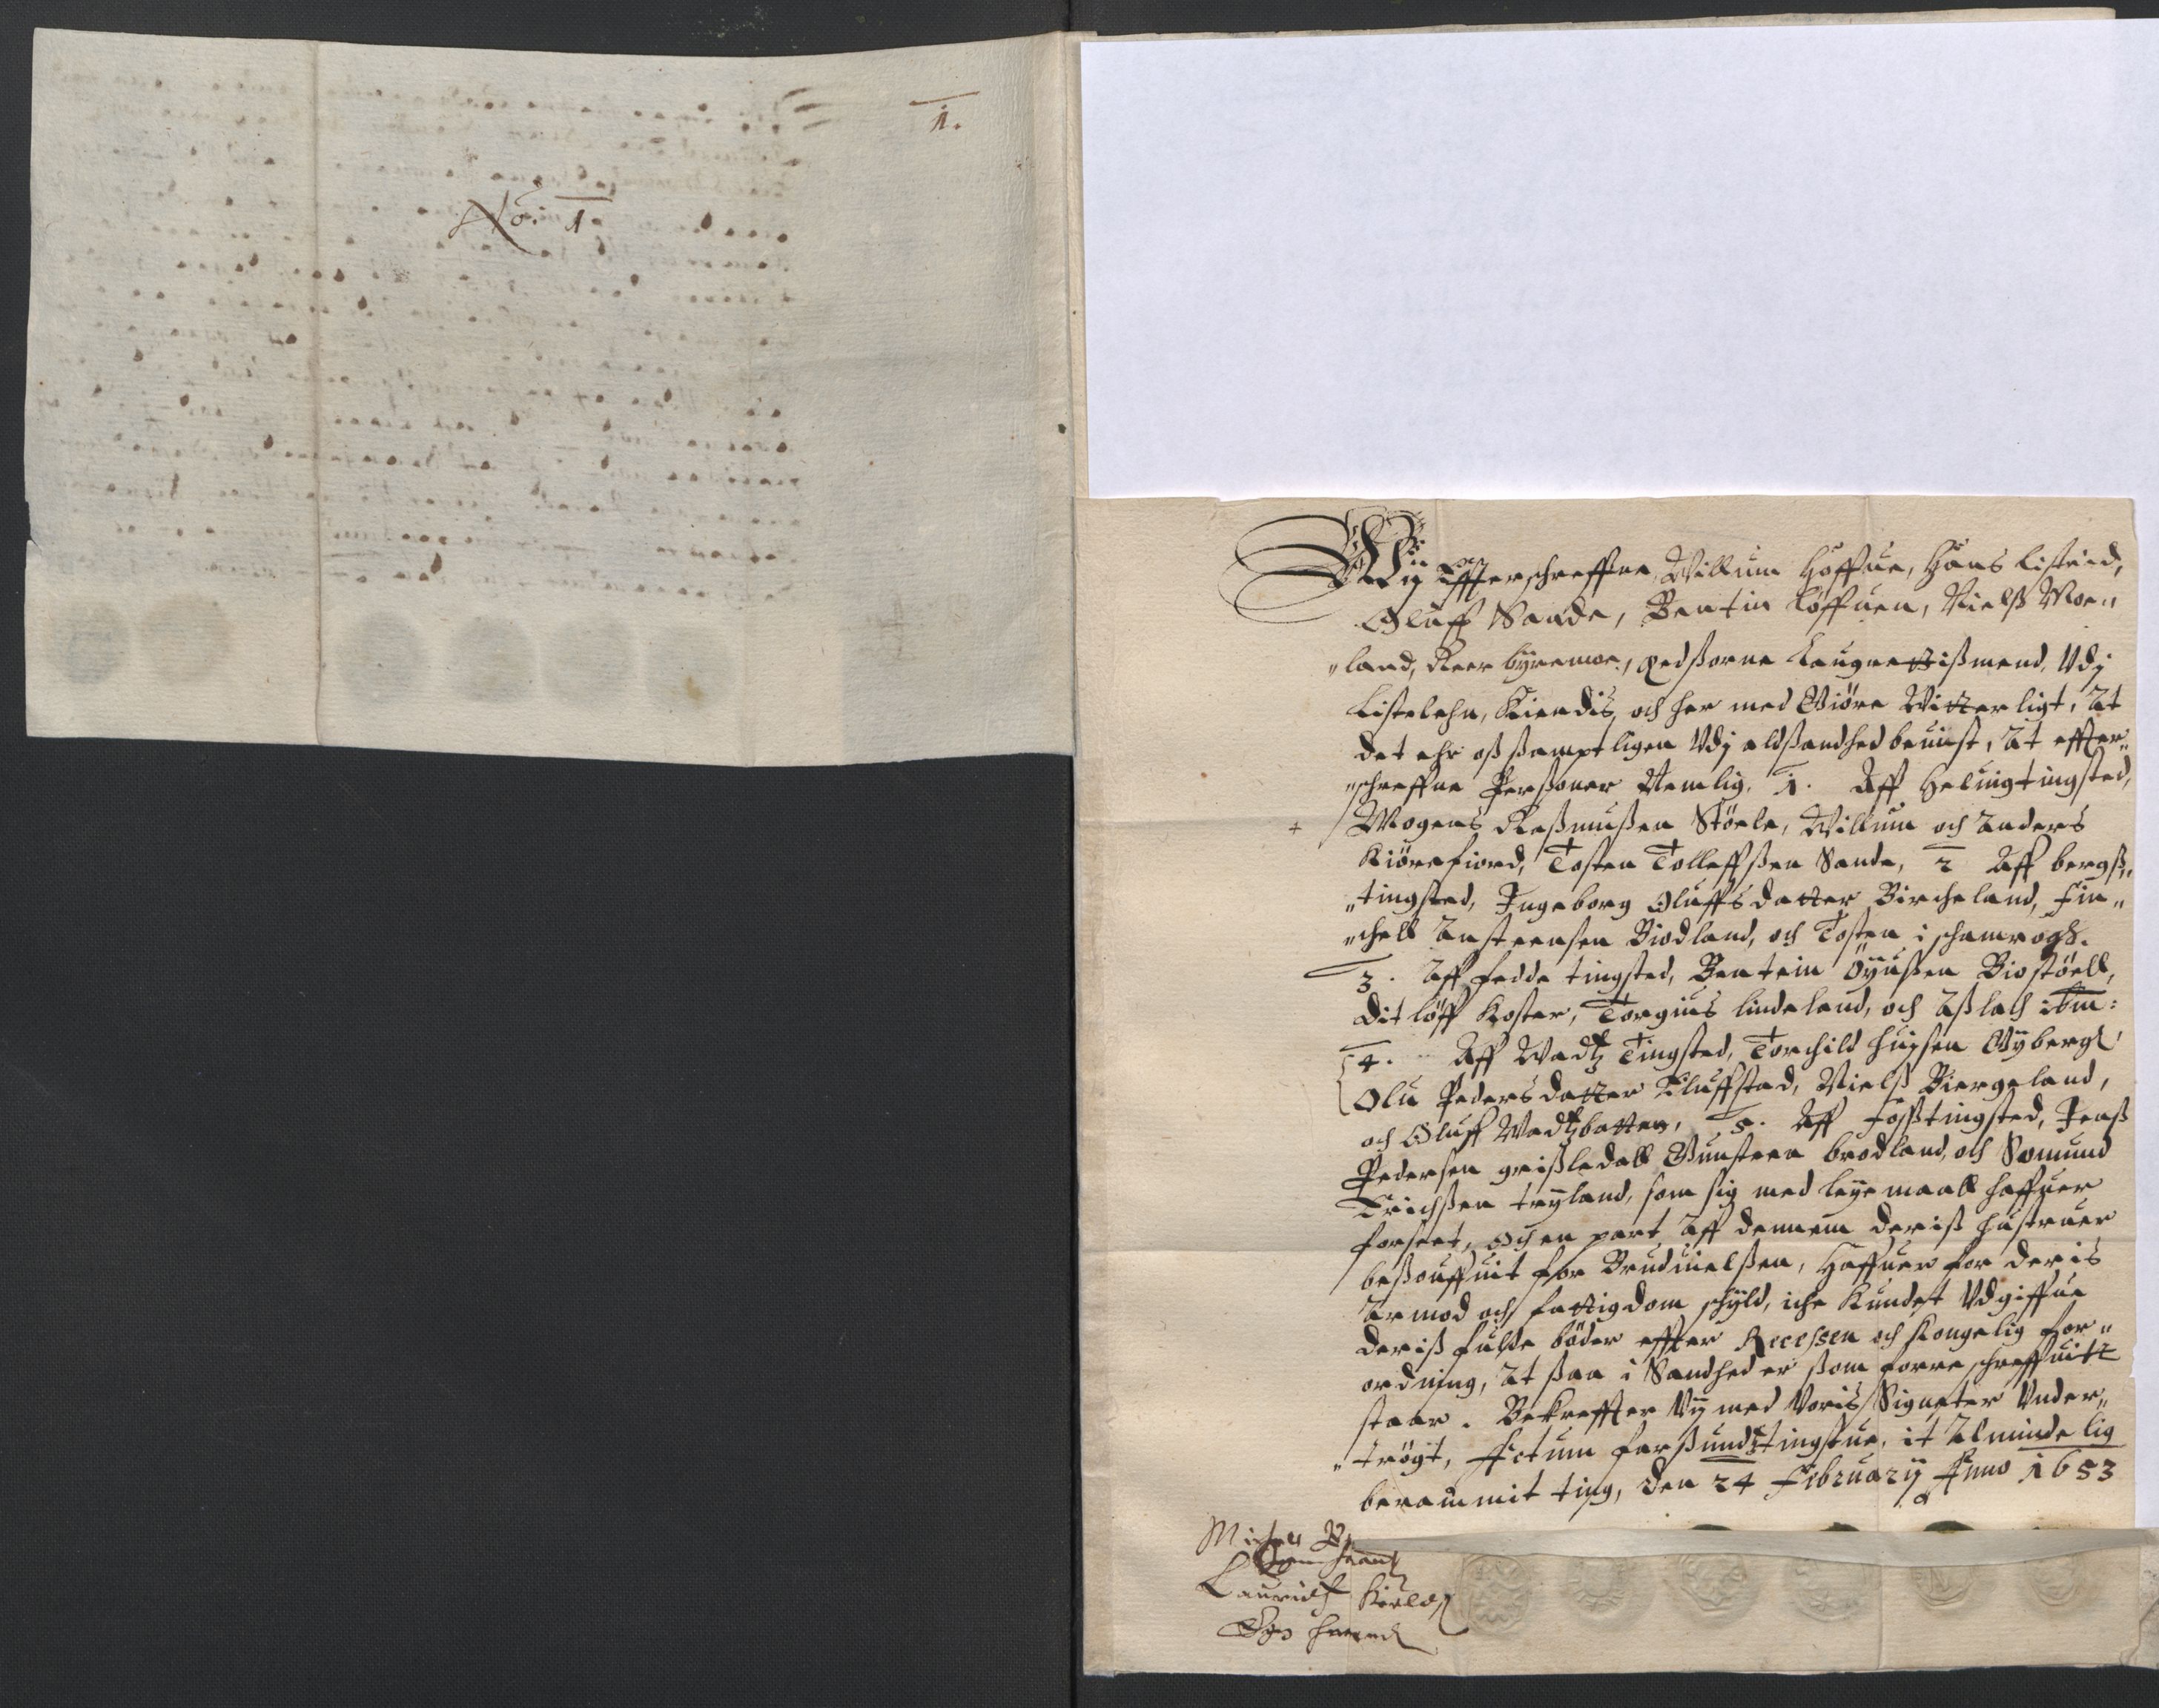 1.
No: 1
Wij Effterschreffne, Willum Höffue, Hans Listeid,
Oluff Saade, Bentin Löffuen, Nielß Moe„
„land, Reer byremoe, Eedßorne Laugrettißmend, Vdj
Listelehn, Kiendis, och her med Giöre Witterligt, At
det ehr oß ßamptligen Vdj aldßandhed beuist, At effter„
„schreffne Perßoner Nemlig. 1. Aff Heluigtingsted,
Mogens Raßmußen Stöele, Willum och Anders
Kiörefiord, Tosten Tolleffßen Sande, 2 Aff bergß„
„tingsted, Ingeborg Oluffsdatter Bircheland, Fin„
„chell Ansteensen Biodland, och Tosten i
3. Aff Fedde tingsted, Bentein Öyußen Biostöell,
Ditlöff Koster, Torgius Lindeland, och Aßlach ibm:
4. Aff Wadtz Tingsted, Torchild
Olu Pedersdatter Kluffstad, Nielß Biergeland,
och Oluff Wadtzbatten, 5. Aff Foßtingsted, Jenß
Pedersen greißledall Gunsteen brodland, och Somund
Erichßen tryland, som sig med leyemaall haffuer
forseet, och en part Aff dennem deriß hustruer
beßouffuit for Brudvielßen, Haffuer for deris
Armod och fattigdom schyld, iche Kundet Vdgiffue
deriß fulde böder effter Recessen och Kongelig for„
ordning, At ßaa i Sandhed er ßom forreschreffuitt
staar. Bekreffter Vij med Voris Signeter Vnder„
„trögt, Actum Farßundtztingstue, it Almindelig
berammit ting, den 24 Februarij Anno 1653
Laurids Kield